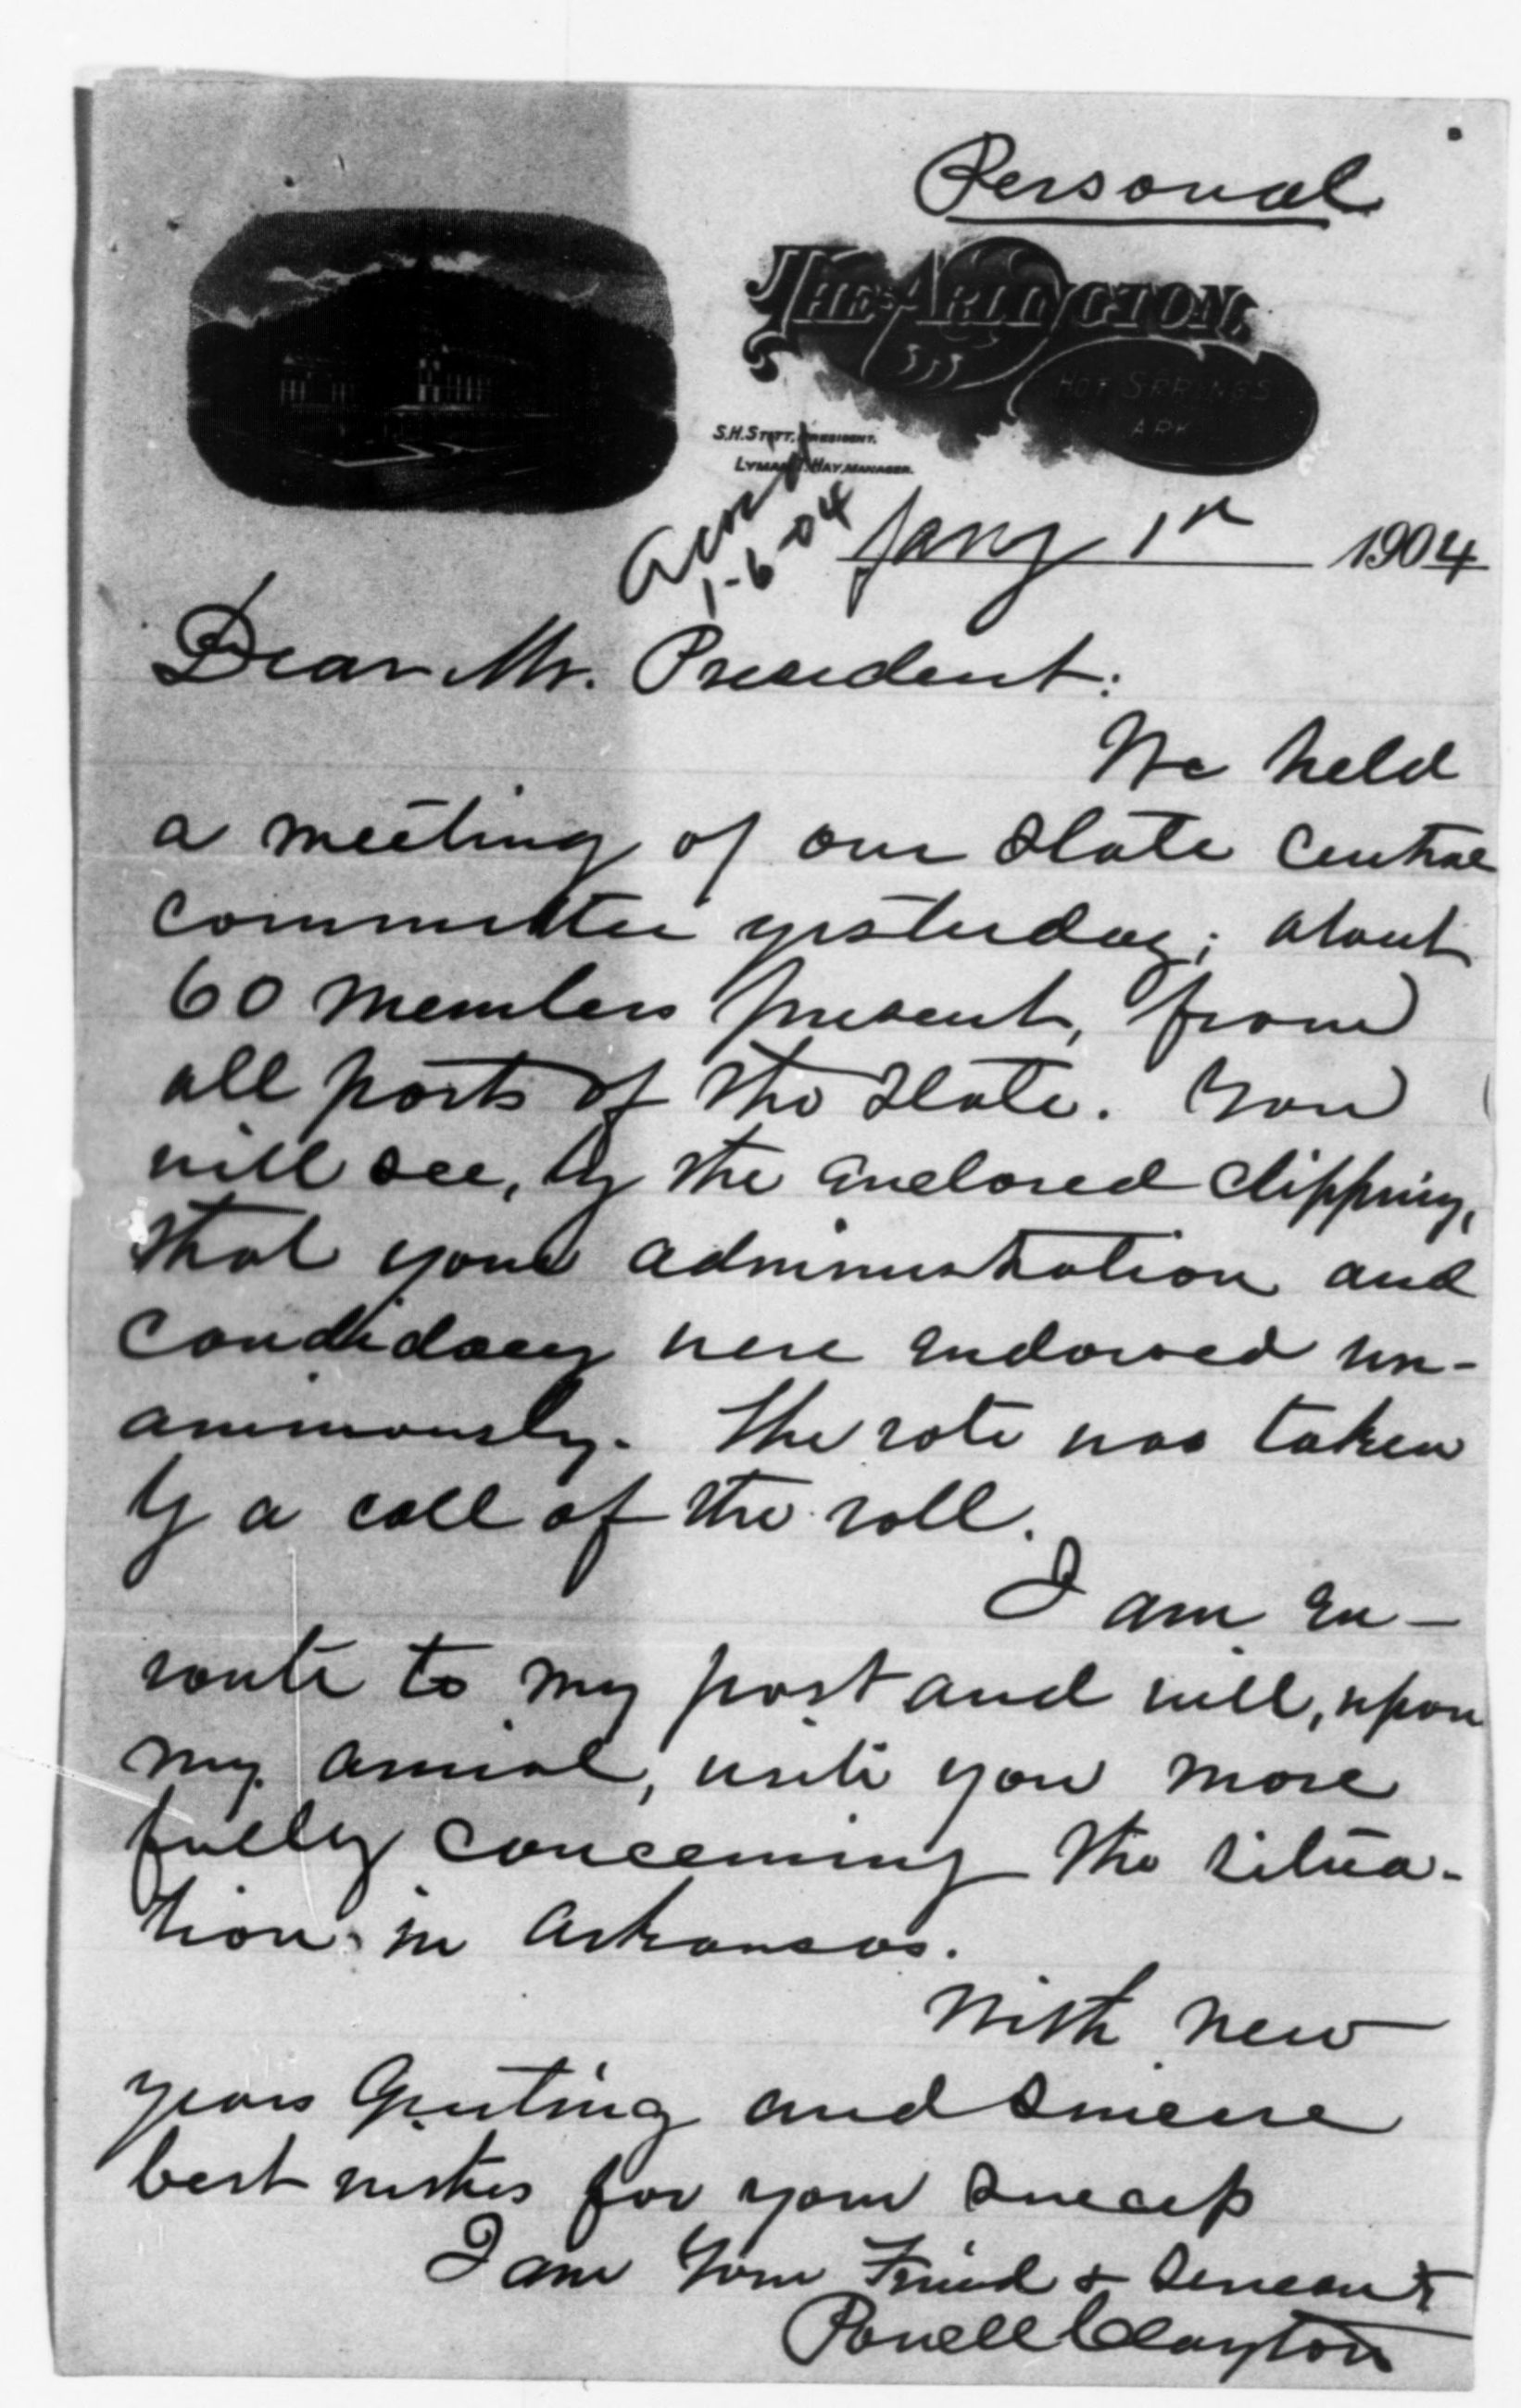 Personal
THE ARLINGTON,
HOT SPRINGS
ARK
S.H. STITT, PRESIDENT.
LYMAN T. HAY, MANAGER.
Jany 1st 1904
1-6-04
Dear Mr. President:
We held
a meeting of our State Central
committee yesterday; about
60 members present, from
all parts of the State. You
will see, by the enclosed clipping,
that your administration and
candidacy were endorsed un-
animously. The vote was taken
by a call of the roll.
I am en-
route to my post and will, upon
my arrival, write you more
fully concerning the situa-
tion in Arkansas.
With new
years Greeting and sincere
best wishes for your success
I am Your Friend & Servant
Powell Clayton